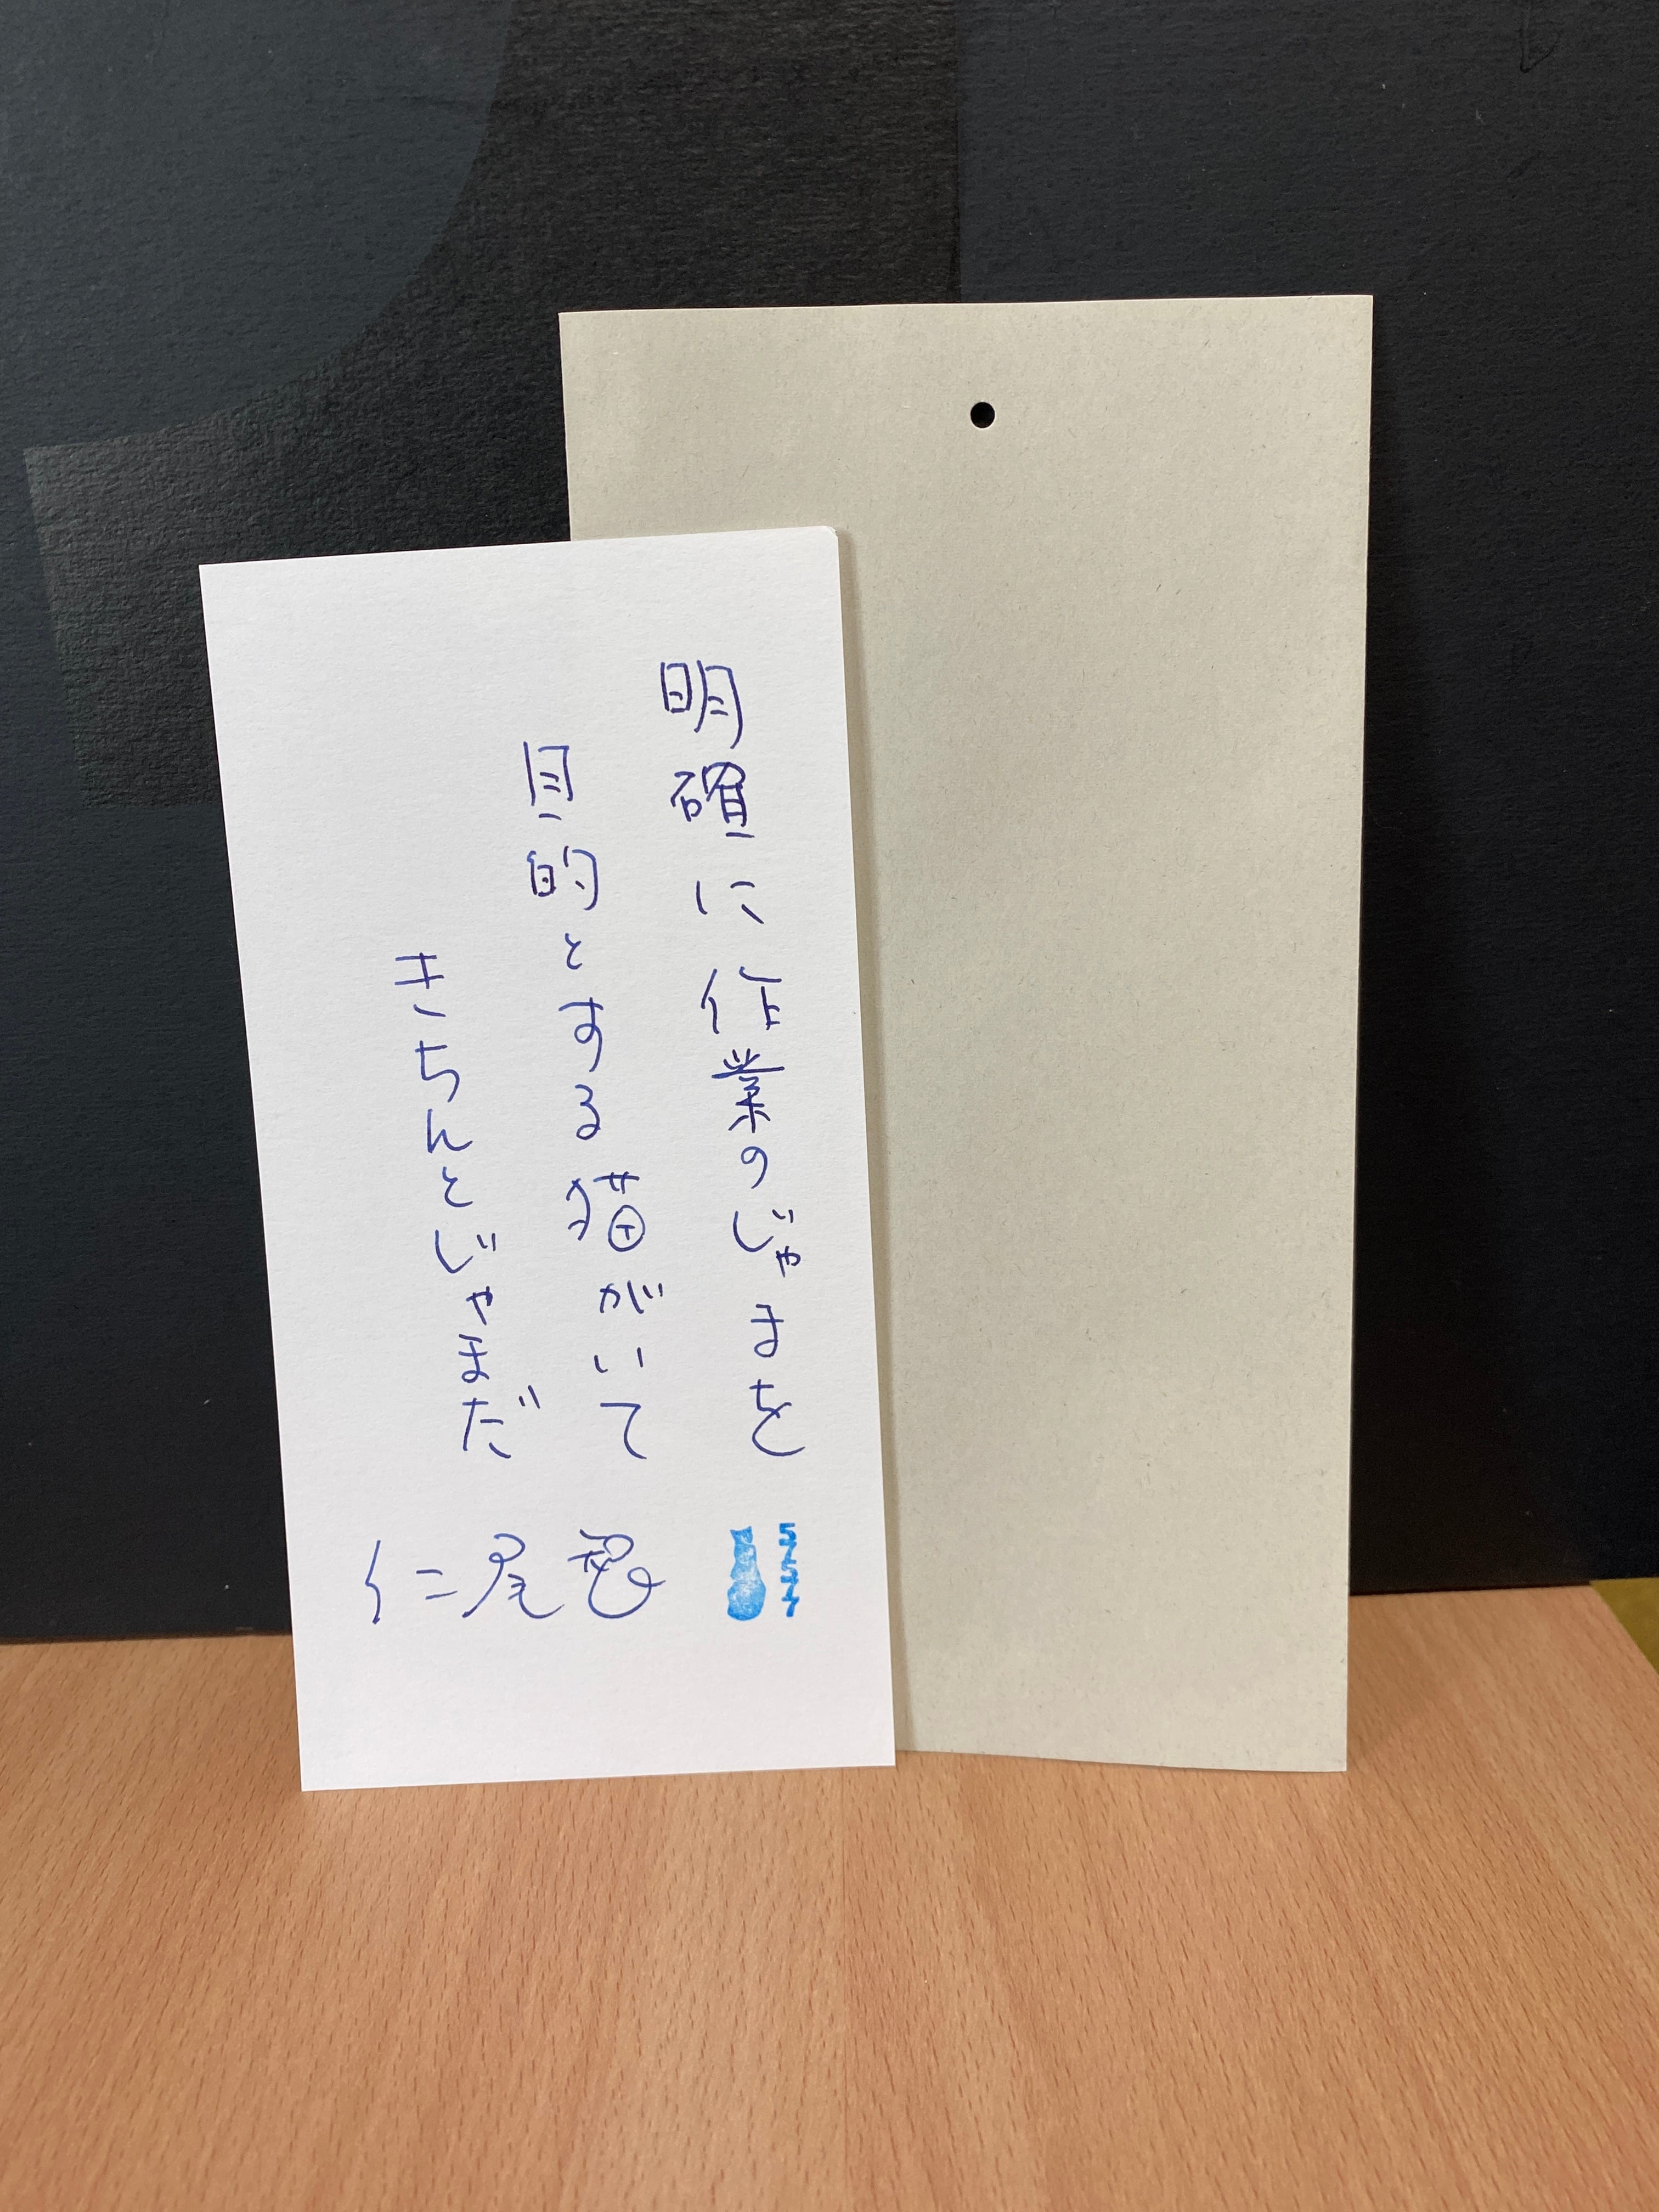 明確に作業のじゃまを
目的とする猫がいて
きちんとじゃまだ
仁尾智
57577